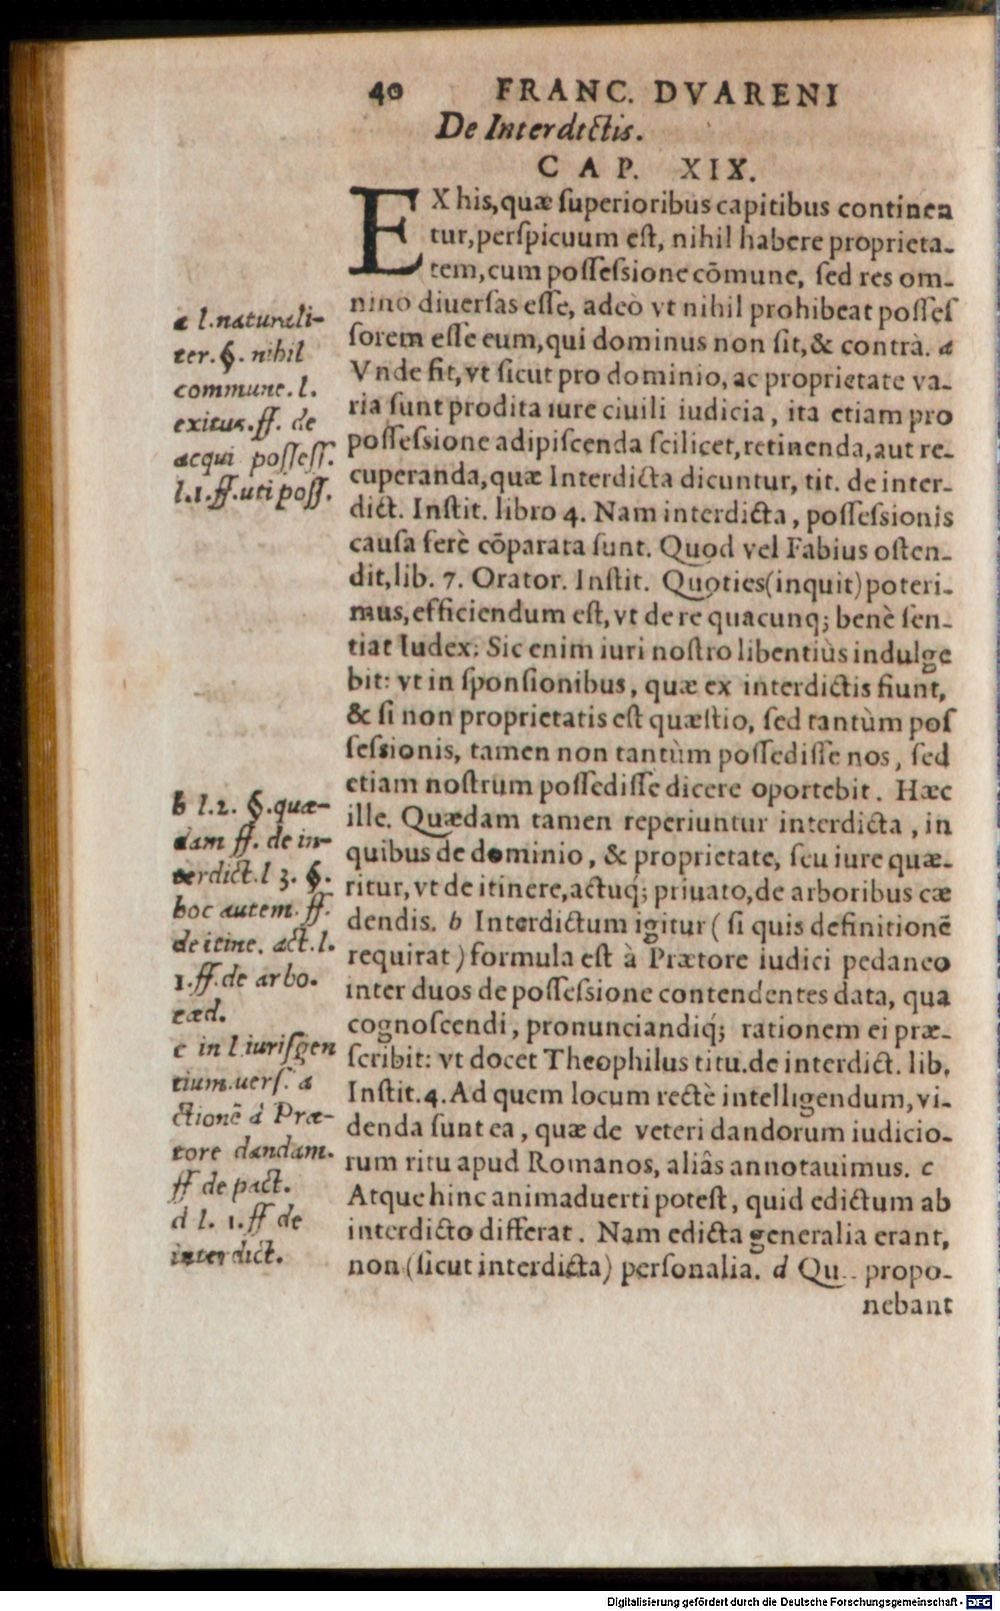 40 FRANC. DVARENI
De Interdictis.
CAP. XIX.
EX his, quæ ſuperioribus capitibus continen
tur, perſpicuum eſt, nihil habere proprieta-
tem, cum poſſeſsione cōmune, ſed res om-
nino diuerſas eſſe, adeò vt nihil prohibeat poſſeſ
ſorem eſſe eum, qui dominus non ſit, & contrà. a
Vnde fit, vt ſicut pro dominio, ac proprietate va-
ria ſunt prodita iure ciuili iudicia, ita etiam pro
poſſeſsione adipiſcenda ſcilicet, retinenda, aut re-
cuperanda, quæ Interdicta dicuntur, tit. de inter-
dict. Inſtit. libro 4. Nam interdicta, poſſeſsionis
cauſa ferè cōparata ſunt. Quod vel Fabius oſten-
dit, lib. 7. Orator. Inſtit. Quoties (inquit) poteri-
mus, efficiendum eſt, vt de re quacunq; benè ſen-
tiat Iudex: Sic enim iuri noſtro libentiùs indulge
bit: vt in ſponſionibus, quæ ex interdictis fiunt,
& ſi non proprietatis eſt quæſtio, ſed tantùm poſ
ſeſsionis, tamen non tantùm poſſediſſe nos, ſed
etiam noſtrum poſſediſſe dicere oportebit. Hæc
ille. Quædam tamen reperiuntur interdicta, in
quibus de dominio, & proprietate, ſeu iure quæ-
ritur, vt de itinere, actuq; priuato, de arboribus cæ
dendis. b Interdictum igitur ( ſi quis definitionē
requirat ) formula eſt à Prætore iudici pedaneo
inter duos de poſſeſsione contendentes data, qua
cognoſcendi, pronunciandiq́; rationem ei præ-
ſcribit: vt docet Theophilus titu. de interdict. lib.
Inſtit. 4. Ad quem locum rectè intelligendum, vi-
denda ſunt ea, quæ de veteri dandorum iudicio-
rum ritu apud Romanos, aliâs annotauimus. c
Atque hinc animaduerti poteſt, quid edictum ab
interdicto differat. Nam edicta generalia erant,
non (ſicut interdicta) perſonalia. d propo-
nebant
a l. naturali-
ter. §. nihil
commune. l.
exitus. ff. de
acqui poſſeſſ.
l. 1. ff. uti poſſ.
b l. 2. §. quæ-
dam ff. de in-
terdict. l 3. §.
hoc autem. ff.
de itine. act. l.
1. ff. de arbo.
cæd.
c in l. iuriſgen
tium. uerſ. a
ctionē à Præ-
tore dandam.
ff de pact.
d l. 1. ff de
interdict.
Digitalisierung gefördert durch die Deutsche Forschungsgemeinschaft - DFG